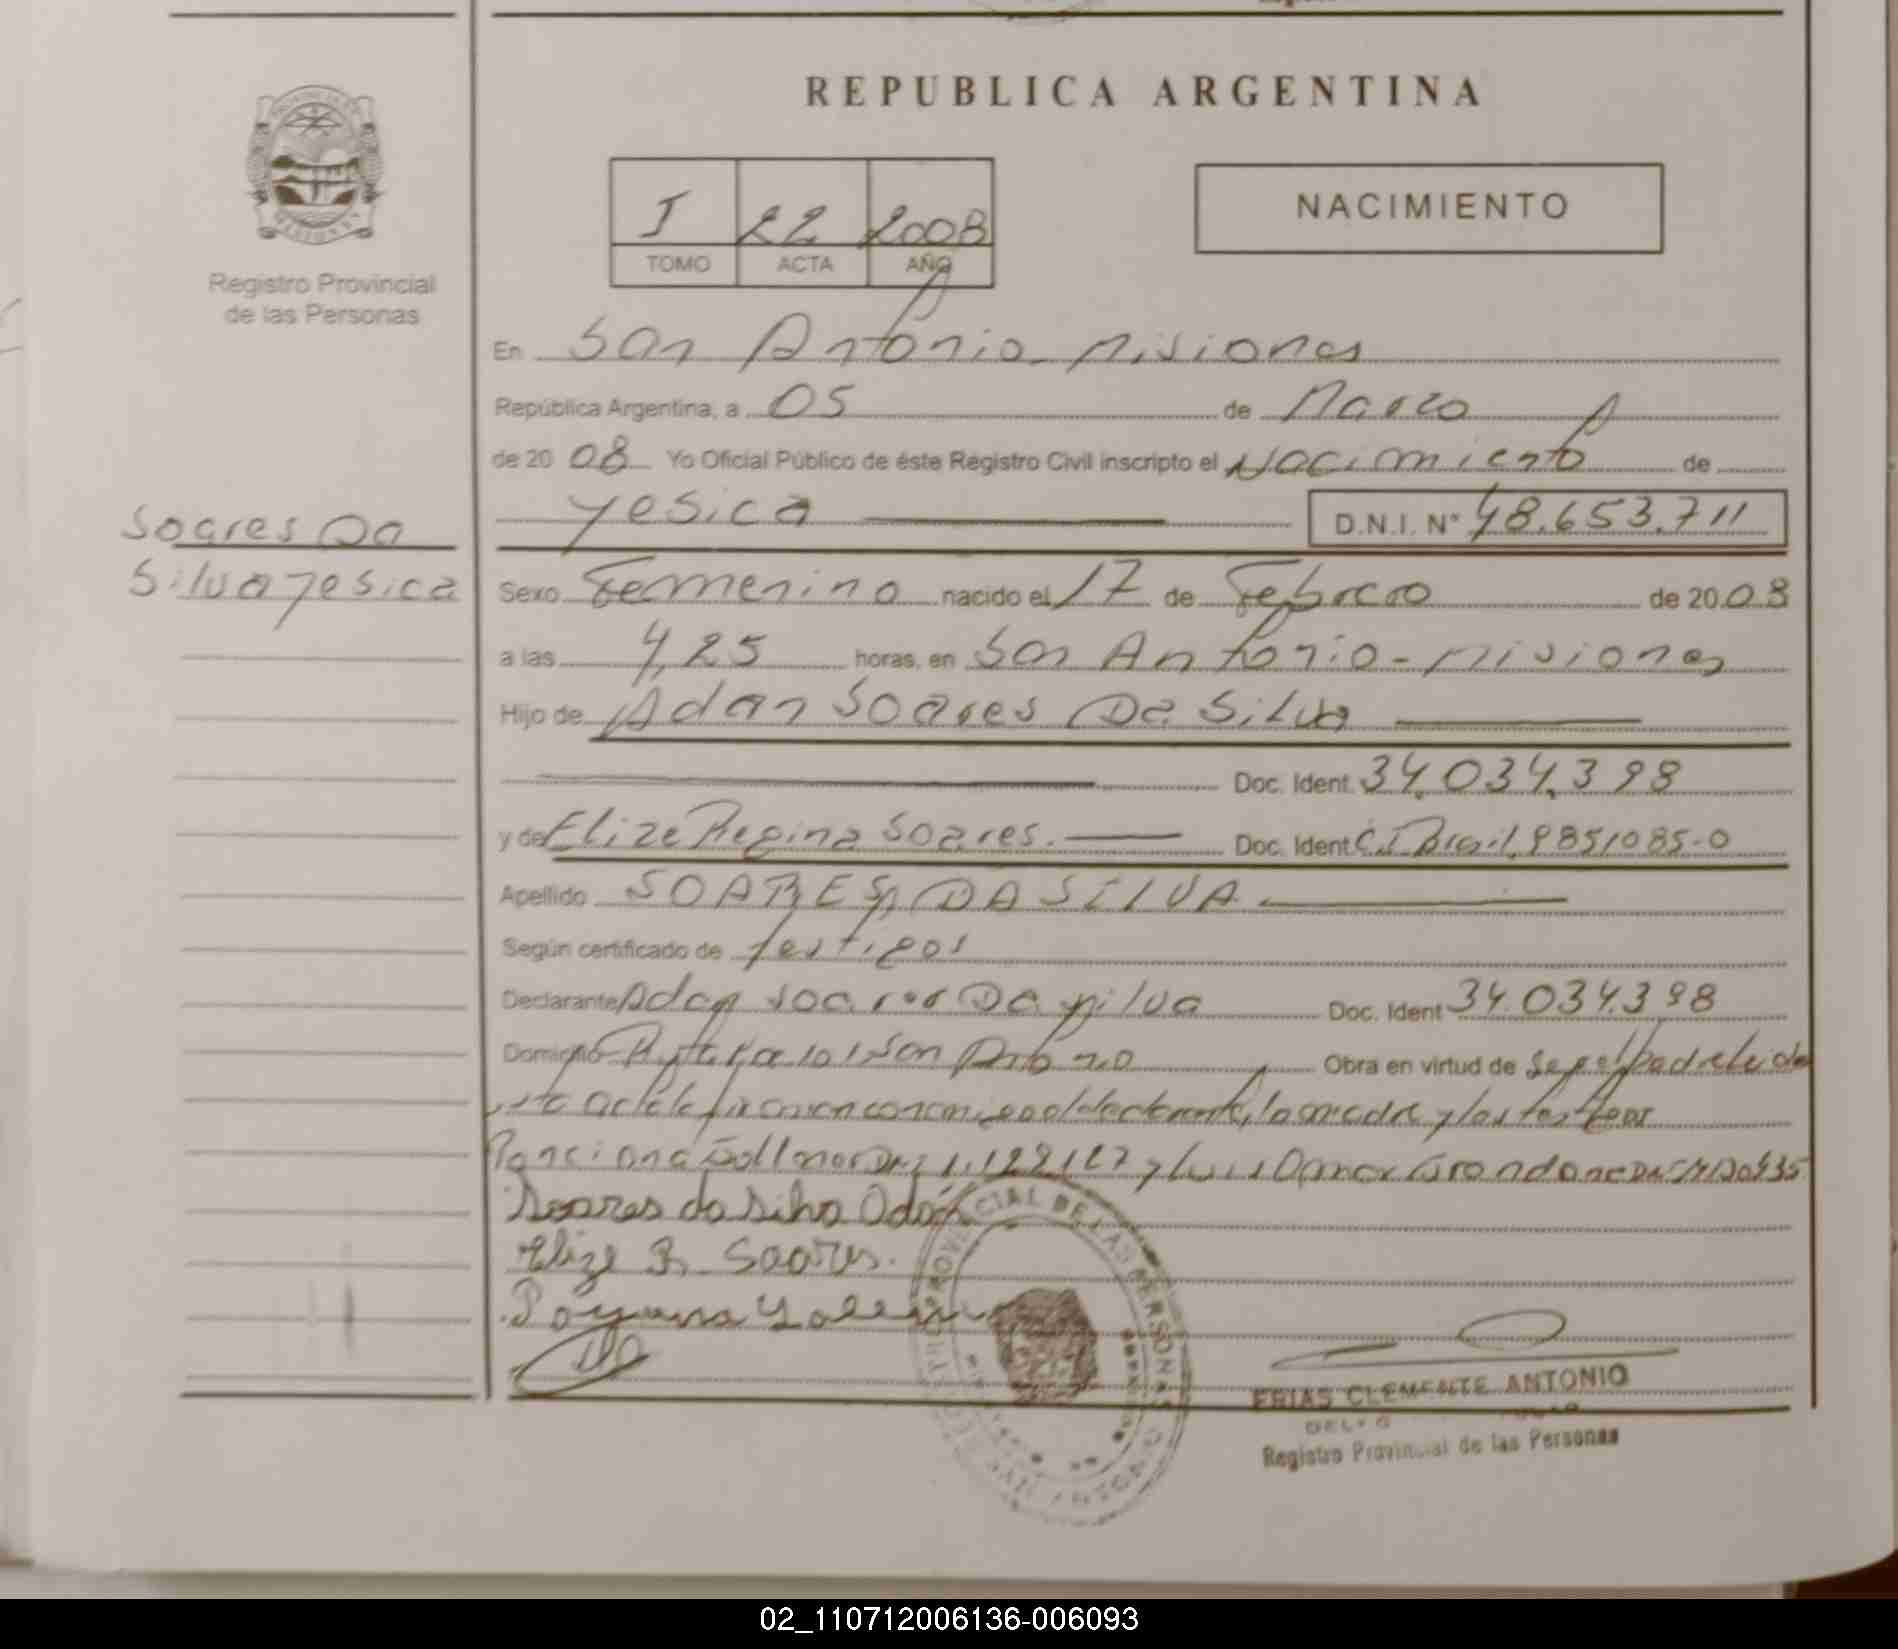 REPUBLICA ARGENTINA
I 22 2008
TOMO ACTA AÑO
NACIMIENTO
Registro Provincial
de las Personas
En San Antonio - Misiones
República Argentina, a 05 de Marzo
de 20 08 Yo Oficial Público de éste Registro Civil inscripto el Nacimiento de
Yesica D.N.I. N° 48.653.711
Soares Da
Silva Yesica
Sexo Femenino nacido el 17 de Febrero de 20 08
a las 4,25 horas, en San Antonio - Misiones
Hijo de Adan Soares Da Silva
Doc. Ident. 34.034.398
y de Elize Regina Soares. Doc. Ident C.I. Brasil 9851085-0
Apellido SOARES DA SILVA
Según certificado de testigos
Declarante Adan Soares Da Silva Doc. Ident 34.034.398
Domicilio Ruta 101 San Antonio Obra en virtud de Ser el padre leida
esta acta la firman conmigo el declarante, la madre y los testigos
Soares da Silva Adán
Elize R. Soares.
FRIAS CLEMENTE ANTONIO
Registro Provincial de las Personas
02_110712006136-006093